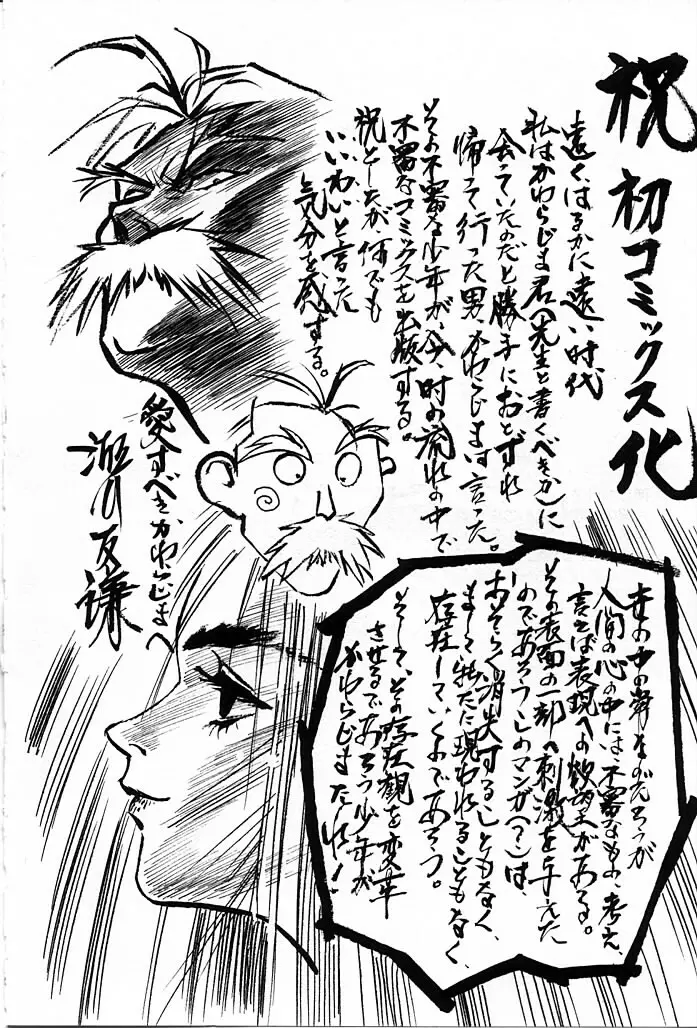 祝初コミックス化
遠くはるかに遠い時代
私はかわらじま君(先生と書くべきか)に
会っていたのだと勝手におとずれ
帰って行った男、かわらじまは言った。
その不審な少年が、今、時の流れの中で
不審なコミックスを出版する。
祝としたが何でも
いいわいと言った
気分を感ずる。
愛すべきかわらじまへ
友謙
世の中の常そのだろうが
人間の心の中には、不審なもの、考え、
言わば表現への欲望がある。
その表面の一部へ刺激を与えた
のであろうこのマンガ(?)は、
おそらく消失することもなく、
まして新たに現われることもなく、
存在していくのであろう。
そして、その存在観を変革
させるであろう少年が
かわらじまたしれ!